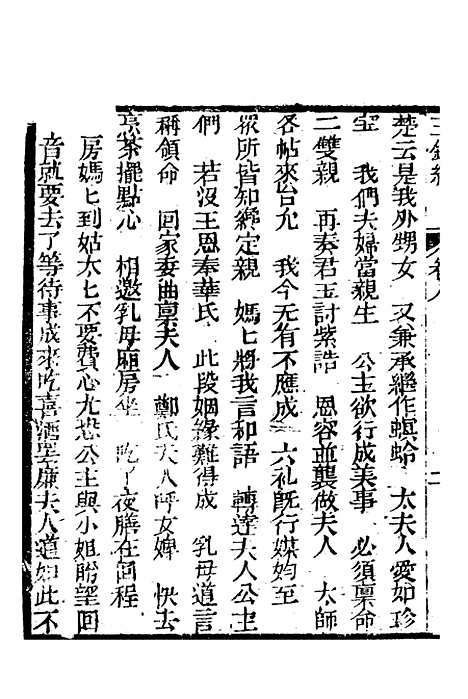 楚云是我外甥女　又兼承繼作螟蛉　太夫人愛如珍
宝　我們夫婦當親生　公主欲行成美事　必須禀命
二雙親　再奏君王討紫誥　恩容並襲做夫人　太師
各帖來台允　我今无有不應成　六礼旣行媒妁至
眾所皆知纔定親　媽匕將我言和語　轉達夫人公主
們　若沒王恩奉華氏　此段姻緣難得成　乳母道言
稱領命　回家委曲禀夫人　鄭氏夫人呼女婢　快去
烹茶擺點心　相邀乳母廂房坐　吃了夜膳在回程
房媽匕到姑太匕不要費心尤恐公主與小姐盻望回
音就要去了等待事成來吃喜酒罢廉夫人道如此不